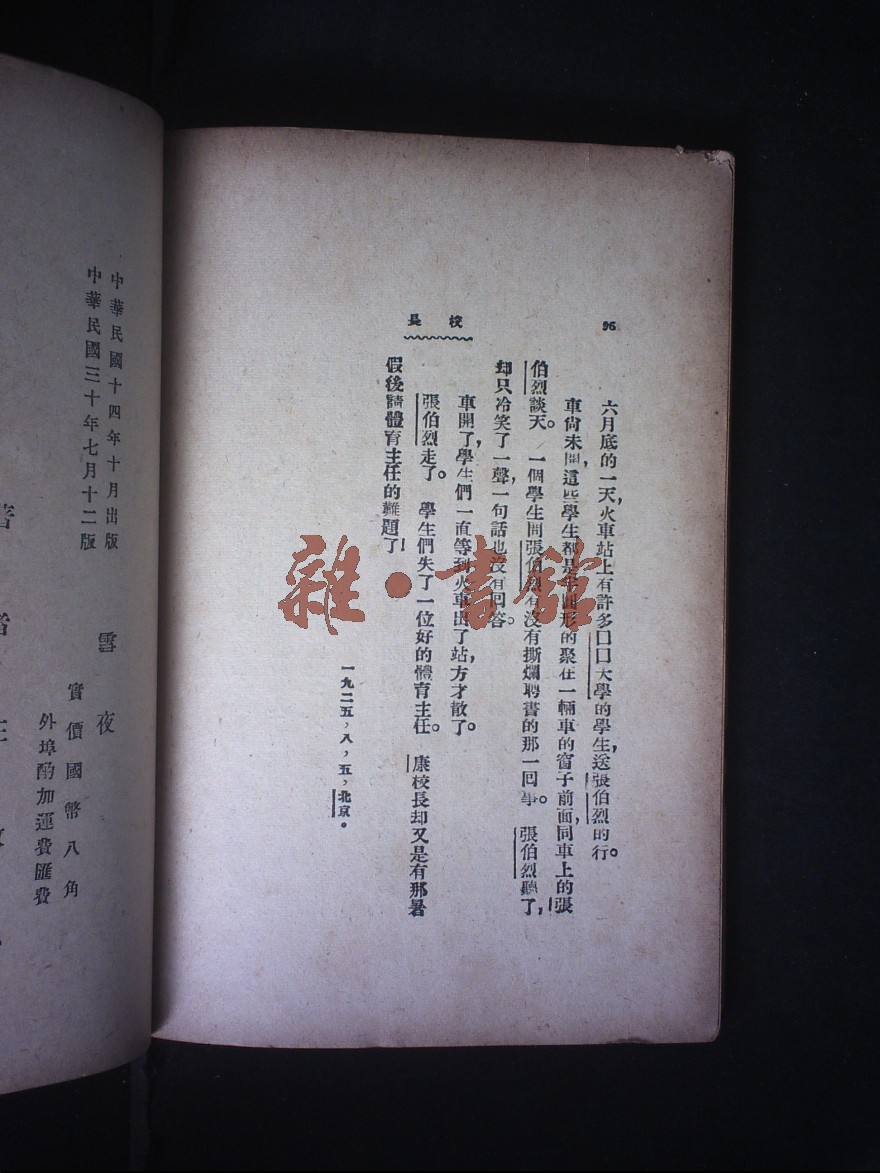 96
校長
六月底的一天,火車站上有許多口口大學的學生,送張伯烈的行。
車尚未開,這些學生都是半圓形的聚在一輛車的窗子前面,同車上的張
伯烈談天。一個學生問張伯烈有沒有撕爛聘書的那一回事。張伯烈聽了,
却只冷笑了一聲,一句話也沒有回答。
車開了,學生們一直等到火車出了站,方才散了。
張伯烈走了。學生們失了一位好的體育主任。康校長却又是有那暑
假後請體育主任的難題了!
一九二五,八,五,北京。
中華民國十四年十月出版
中華民國三十年七月十二版
雪夜
實價國幣八角
外埠酌加運費匯費
雜·書館